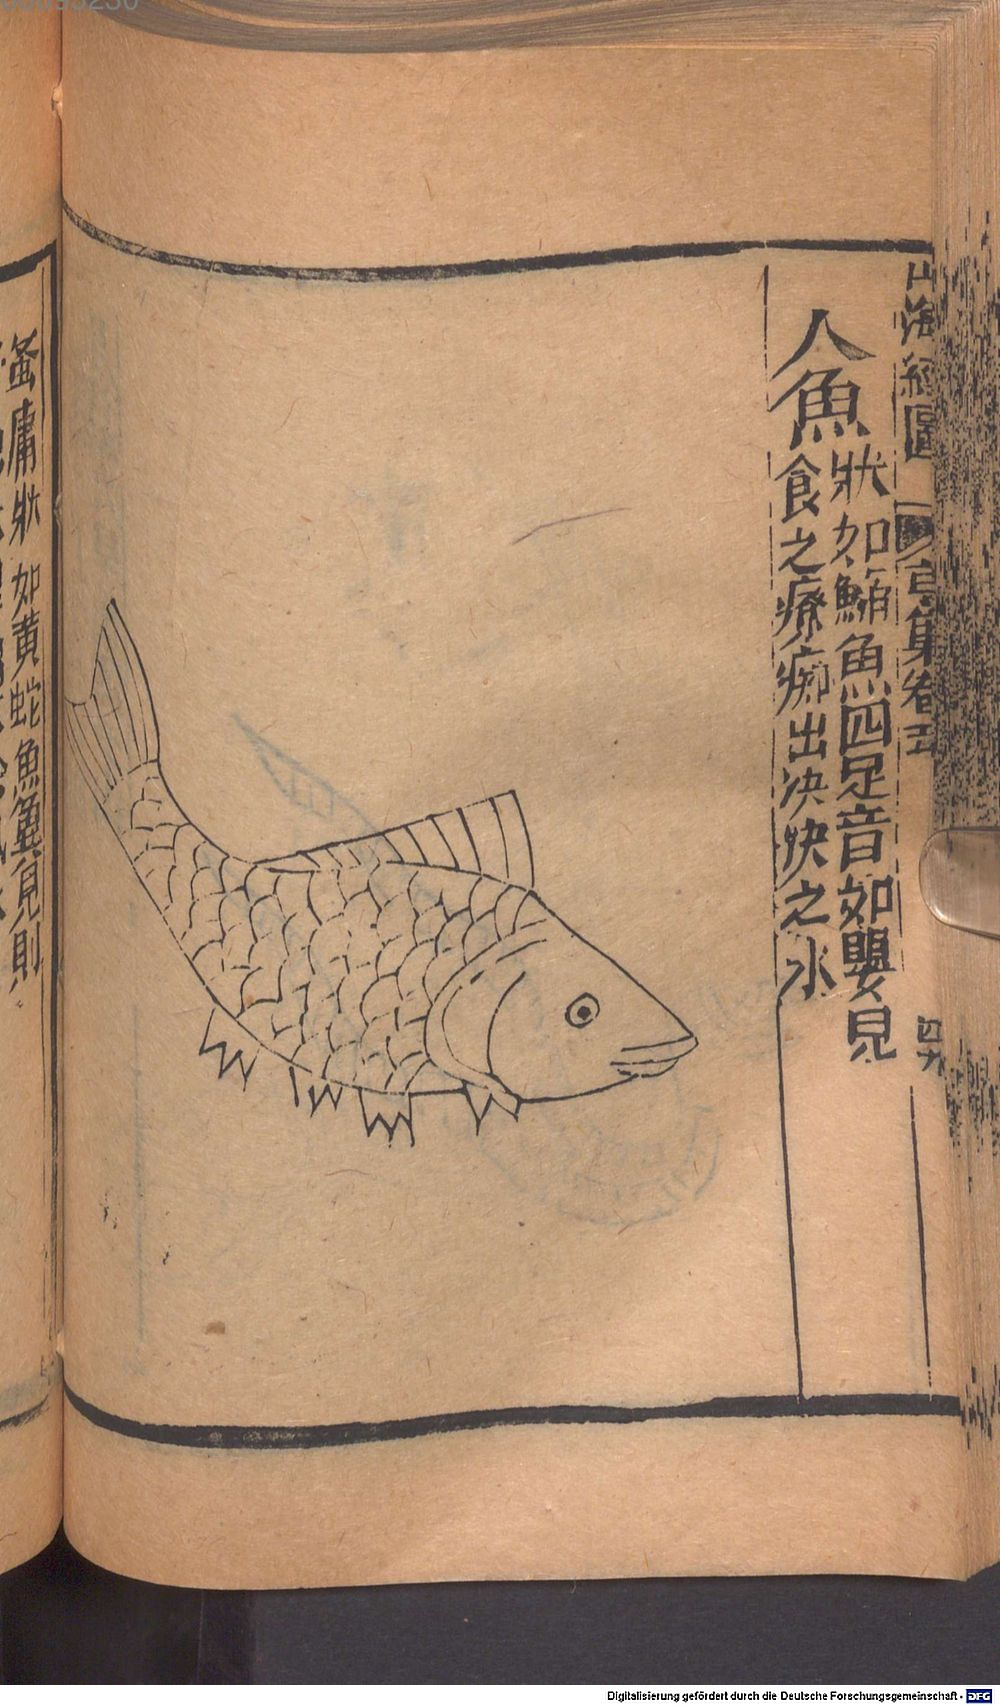 山海經圖
亨集卷五
四九
人魚
狀如鯑魚四足音如嬰兒
食之療痴出决决之水
蚤庸狀如黄蛇魚翼見則
Digitalisierung gefördert durch die Deutsche Forschungsgemeinschaft - DFG